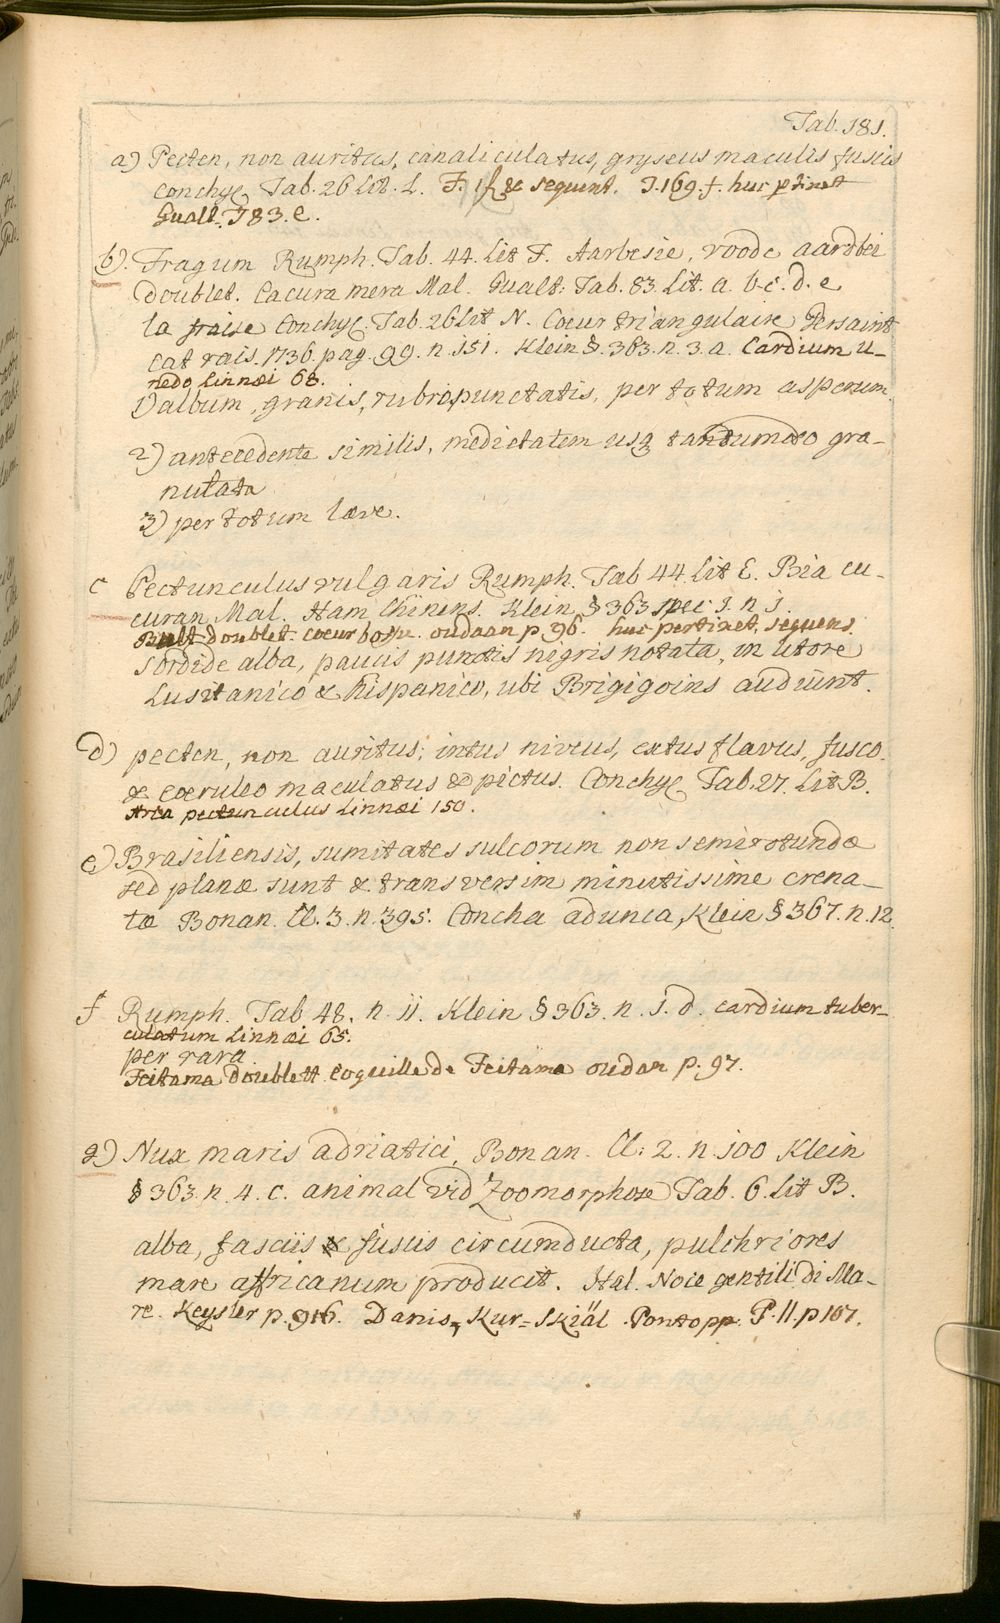 Tab. 181.
a) Pecten, non auritus, canaliculatus, gryseus maculis fuscis
Conchyl. Tab. 26 Lit. L. & sequent. T. 169. f. huc ptinet
Gualt. T 83. e.
b). Fragum Rumph. Tab. 44. Lit F. Aarbesie, roode aardbei
doublet. Cacura mera Mal. Gualt: Tab. 83. Lit. a. b. c. d. e
la fraise Conchyl. Tab. 26 Lit N. Coeur triangulaire Gersaint
cat rais. 1736. pag. 99. n. 151. Klein § 363. n. 3. a. Cardium u-
nedo Linnæi 68.
1) album, granis, rubropunctatis, per totum asperum.
2) antecedente similis, medietatem usq tantumdo gra-
nulata
3) per totum læve.
c Pectunculus vulgaris Rumph. Tab 44. Lit E. Bia cu-
curan Mal. Ham Chinens. Klein § 363 spec 1. n 1.
doublet. coeur oudaan p. 96. huc pertinet sequens
sordide alba, paucis punctis nigris notata, in litore
Lusitanico & hispanico, ubi Brigigoins audiunt.
d) pecten, non auritus; intus niveus, extus flavus, fusco
& coeruleo maculatus & pictus. Conchyl. Tab. 27. Lit B.
Arca pectunculus Linnæi 150.
e) Brasiliensis, sumitates sulcorum non semirotundæ
sed planæ sunt & transversim minutissime crena-
tæ Bonan. Cl. 3. n. 395. Concha adunca, Klein § 367. n. 12.
f Rumph. Tab 48. n. 11. Klein § 363. n. 1. d. cardium tuber-
culatum Linnæi 65.
per rara
Feitama doublett Coquille de Feitama oudan p. 97.
g) Nux maris adriatici, Bonan. Cl: 2. n. 100 Klein
§ 363. n. 4. c. animal vid Zoomorphose Tab. 6. Lit B.
alba, fasciis fuscis circumducta, pulchriores
mare affricanum producit. Ital. Noce gentili di Ma-
re. Keysler p. 916. Danis, Kur-Skiäl. Pontopp. P. II. p 167.